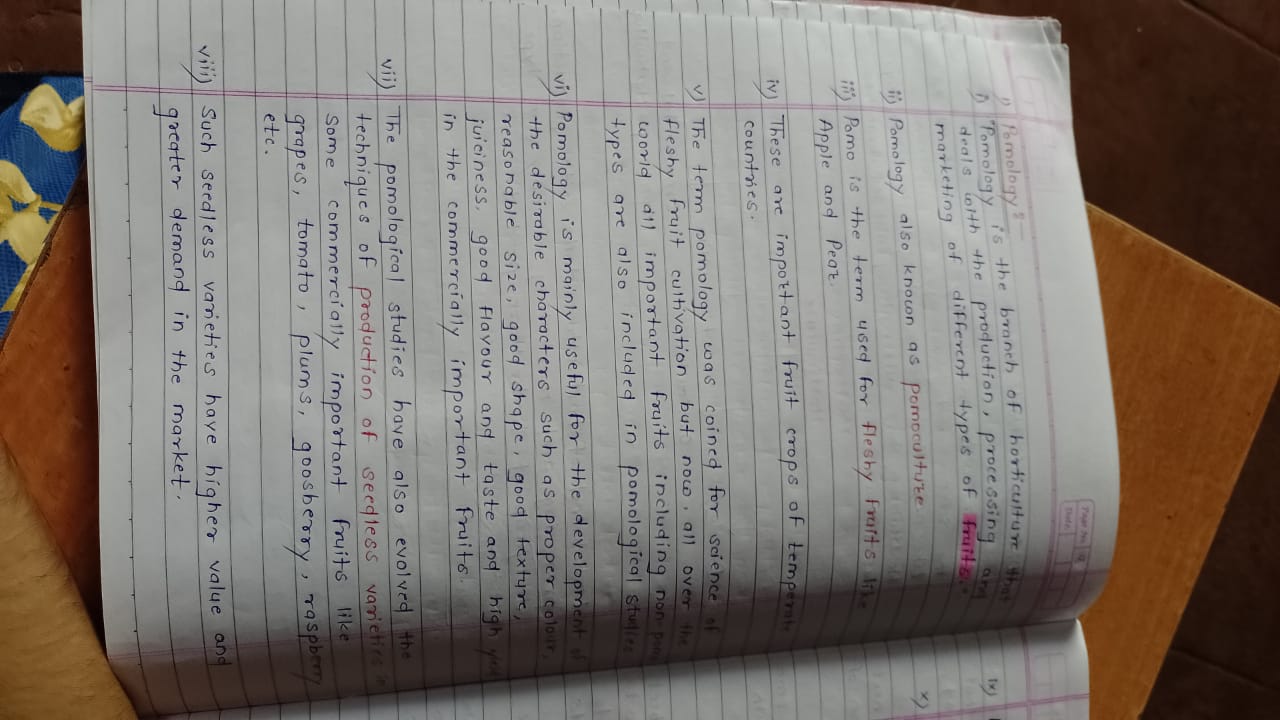 Page No. 9
Date
1) Pomology :-
i) "Pomology is the branch of horticulture that
deals with the production, processing and
marketing of different types of fruits."
ii) Pomology also known as pomoculture
iii) Pomo is the term used for fleshy fruits like
Apple and Pear.
iv) These are important fruit crops of temperate
countries.
v) The term pomology was coined for science of
fleshy fruit cultivation but now, all over the
world all important fruits including non
types are also included in pomological studies
vi) Pomology is mainly useful for the development of
the desirable characters such as proper colour,
reasonable size, good shape, good texture,
juiciness, good flavour and taste and high
in the commercially important fruits.
vii) The pomological studies have also evolved the
techniques of production of seedless varieties
Some commercially important fruits like
grapes, tomato, plums, goosberry, raspberry
etc.
viii) Such seedless varieties have higher value and
greater demand in the market.
ix)
x)